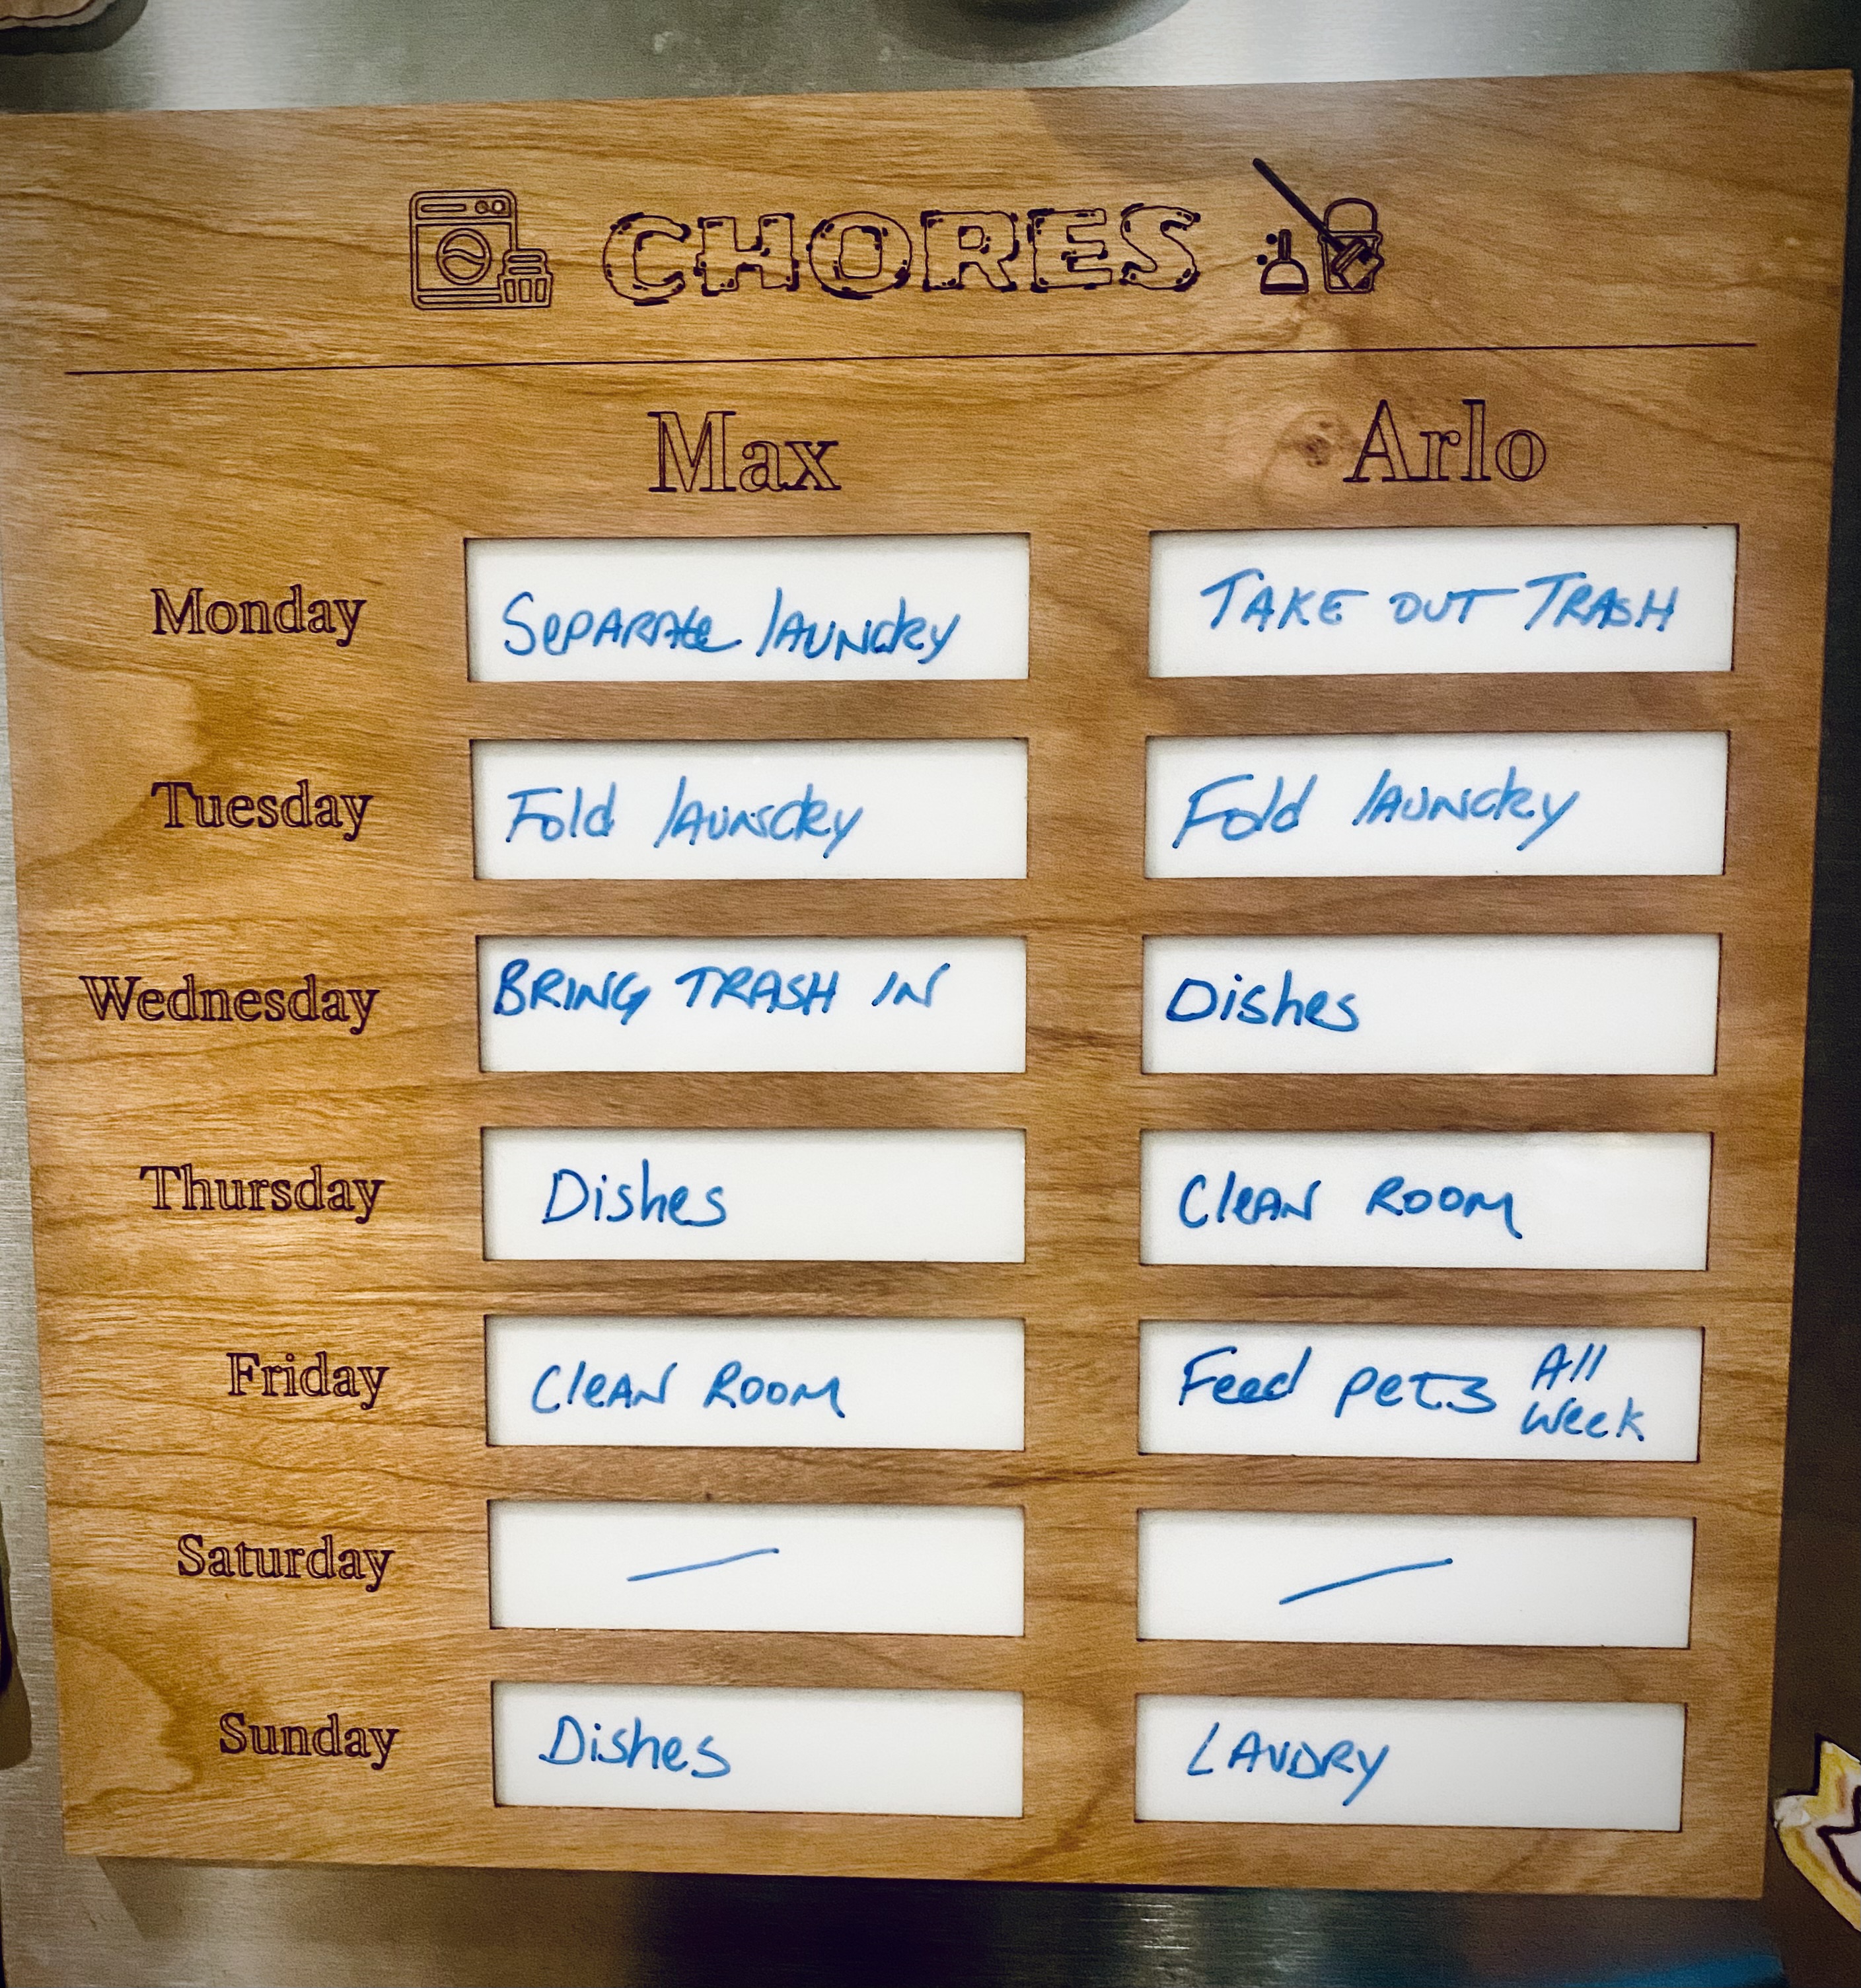 CHORES
Max Arlo
Monday Separate laundry TAKE OUT TRASH
Tuesday Fold laundry Fold laundry
Wednesday BRING TRASH IN Dishes
Thursday Dishes Clean ROOM
Friday Clean ROOM Feed pets All
Week
Saturday — —
Sunday Dishes LAUDRY